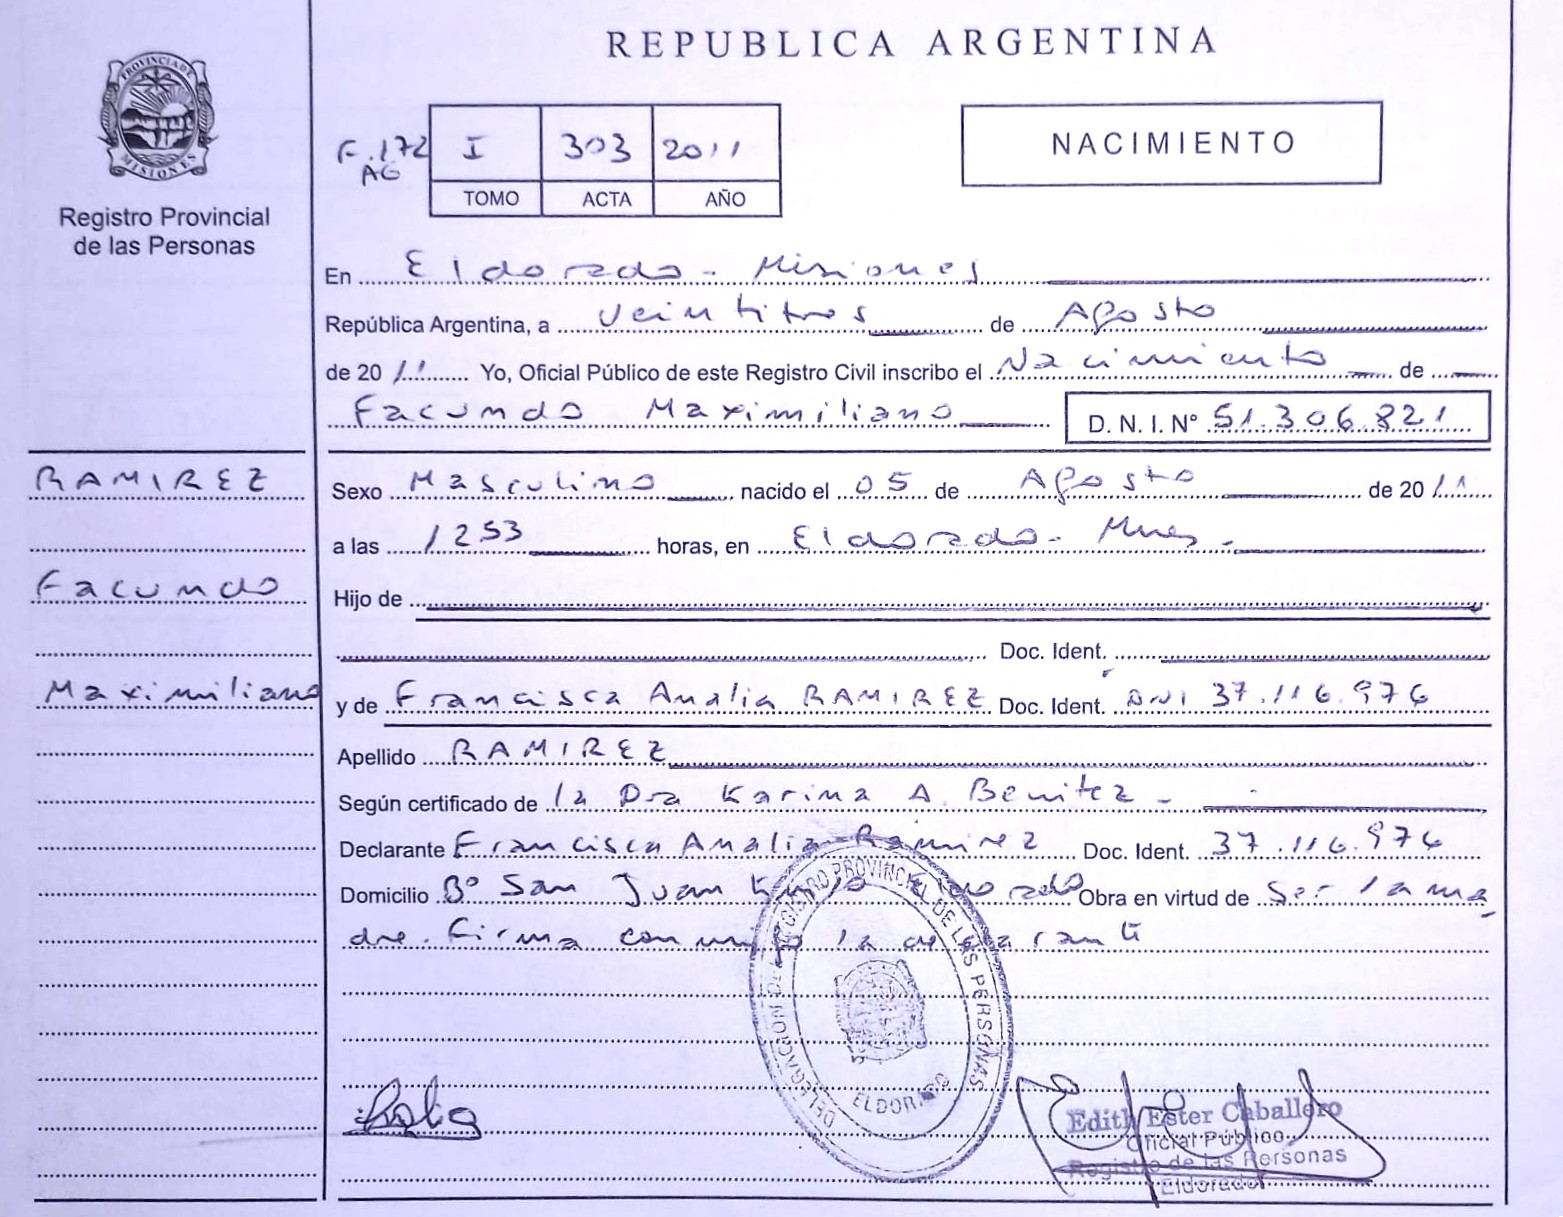 REPUBLICA ARGENTINA
PROVINCIA DE
MISIONES
Registro Provincial
de las Personas
F.172
AG
I 303 2011
TOMO ACTA AÑO
NACIMIENTO
En Eldorado - Misiones
República Argentina, a veintitres de Agosto
de 2011 Yo, Oficial Público de este Registro Civil inscribo el Nacimiento de
Facundo Maximiliano D. N. I. Nº 51.306.821
RAMIREZ
Facundo
Maximiliano
Sexo Masculino nacido el 05 de Agosto de 2011
a las 1253 horas, en Eldorado - Mnes -
Hijo de
Doc. Ident.
y de Francisca Analia RAMIREZ Doc. Ident. DNI 37.116.976
Apellido RAMIREZ
Según certificado de la Dra Karina A. Benitez -
Declarante Francisca Analia Ramirez Doc. Ident. 37.116.976
Domicilio Bº San Juan Eldorado Obra en virtud de Ser la ma
dre. Firma conmigo la declarante
DELEGACION REGISTRO PROVINCIAL DE LAS PERSONAS
ELDORADO
Edith Ester Caballero
Oficial Público
Registro de las Personas
Eldorado